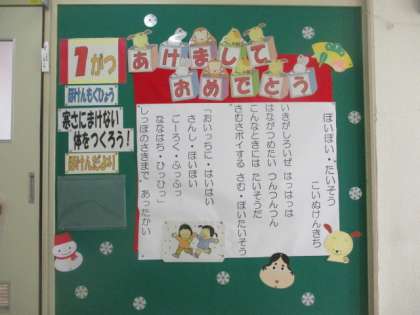 1がつ
あけまして
おめでとう
ほけんもくひょう
寒さにまけない
体をつくろう!
ほけんだより
ぽいぽい・たいそう
こいぬけんきち
いきがしろいぜ はっはっは
はながつめたい つんつんつん
こんなときには たいそうだ
さむさポイする さむ・ぽいたいそう
「おいっちに・はいはい
さんし・ほいほい
ごーろく・ふっふっ
ななはち・ひっひっ」
しっぽのさきまで あったかい